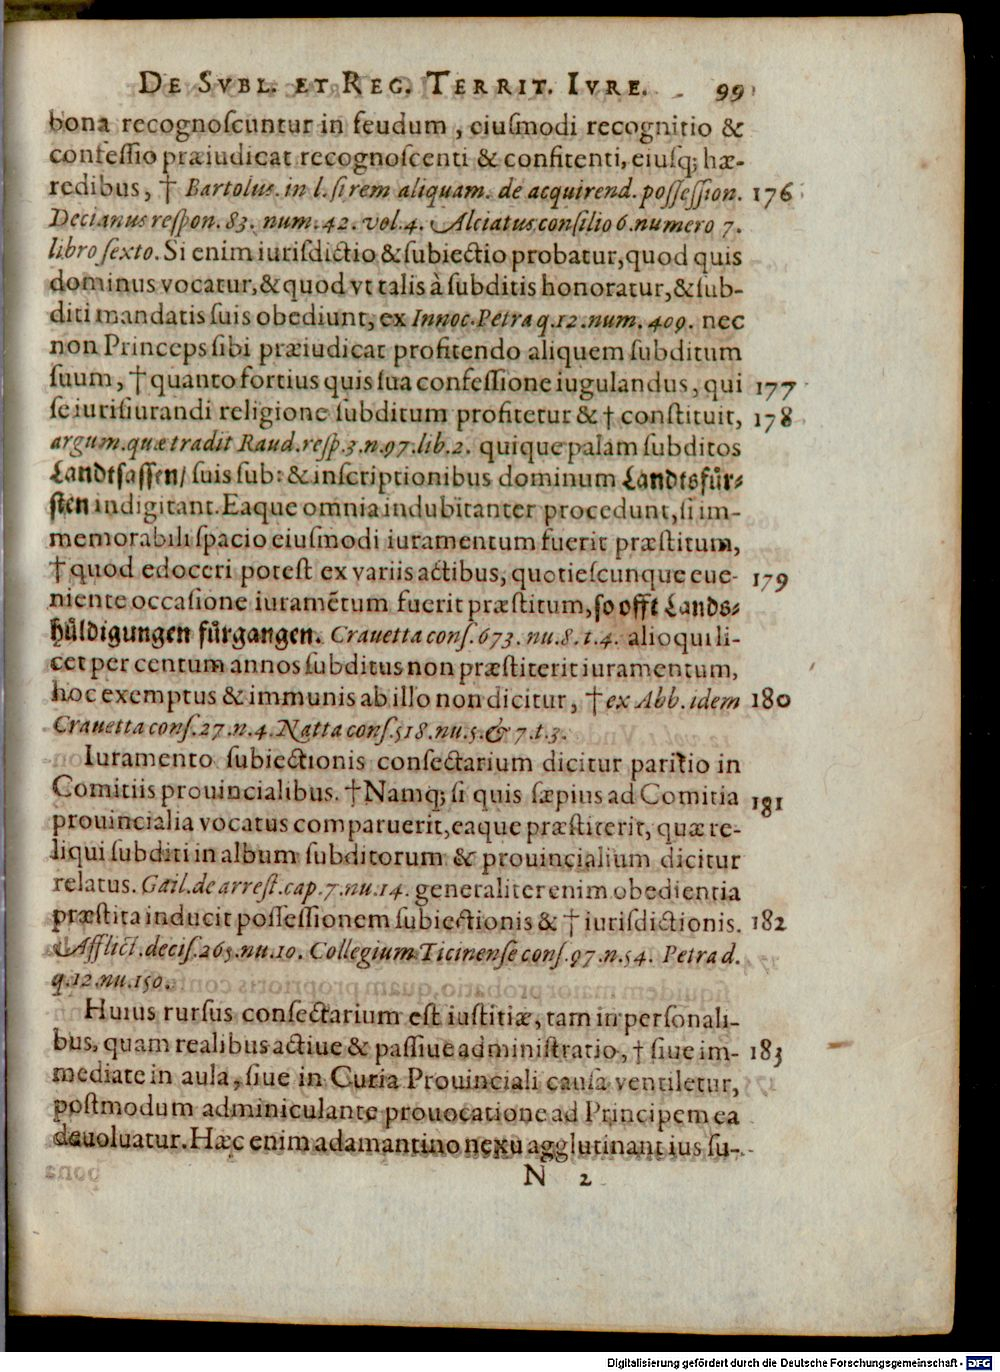 DE SVBL. ET REG. TERRIT. IVRE. 99
bona recognoscuntur in feudum, eiusmodi recognitio &
confessio præiudicat recognoscenti & confitenti, eiusq; hæ-
redibus, † Bartolus. in l. si rem aliquam. de acquirend. possession. 176
Decianus respon. 83. num. 42. vol. 4. Alciatus consilio 6. numero 7.
libro sexto. Si enim iurisdictio & subiectio probatur, quod quis
dominus vocatur, & quod vt talis à subditis honoratur, & sub-
diti mandatis suis obediunt, ex Innoc. Petra q. 12. num. 409. nec
non Princeps sibi præiudicat profitendo aliquem subditum
suum, † quanto fortius quis sua confessione iugulandus, qui 177
se iurisiurandi religione subditum profitetur & † constituit, 178
argum. quæ tradit Raud. resp. 3. n. 97. lib. 2. quique palam subditos
Landtsassen/ suis sub: & inscriptionibus dominum Landtsfür-
sten indigitant. Eaque omnia indubitanter procedunt, si im-
memorabili spacio eiusmodi iuramentum fuerit præstitum,
† quod edoceri potest ex variis actibus, quotiescunque eue- 179
niente occasione iuramẽtum fuerit præstitum, so offt Lands-
hüldigungen fürgangen. Crauetta cons. 673. nu. 8. t. 4. alioqui li-
cet per centum annos subditus non præstiterit iuramentum,
hoc exemptus & immunis ab illo non dicitur, † ex Abb. idem 180
Crauetta cons. 27. n. 4. Natta cons. 518. nu. 5. & 7. t. 3.
Iuramento subiectionis consectarium dicitur paritio in
Comitiis prouincialibus. † Namq; si quis sæpius ad Comitia 181
prouincialia vocatus comparuerit, eaque præstiterit, quæ re-
liqui subditi in album subditorum & prouincialium dicitur
relatus. Gail. de arrest. cap. 7. nu. 14. generaliter enim obedientia
præstita inducit possessionem subiectionis & † iurisdictionis. 182
Afflict. decis. 265. nu. 10. Collegium Ticinense cons. 97. n. 54. Petra d.
q. 12. nu. 150.
Huius rursus consectarium est iustitiæ, tam in personali-
bus, quam realibus actiue & passiue administratio, † siue im- 183
mediate in aula, siue in Curia Prouinciali causa ventiletur,
postmodum adminiculante prouocatione ad Principem ea
deuoluatur. Hæc enim adamantino nexu agglutinant ius su-
N 2
Digitalisierung gefördert durch die Deutsche Forschungsgemeinschaft - DFG